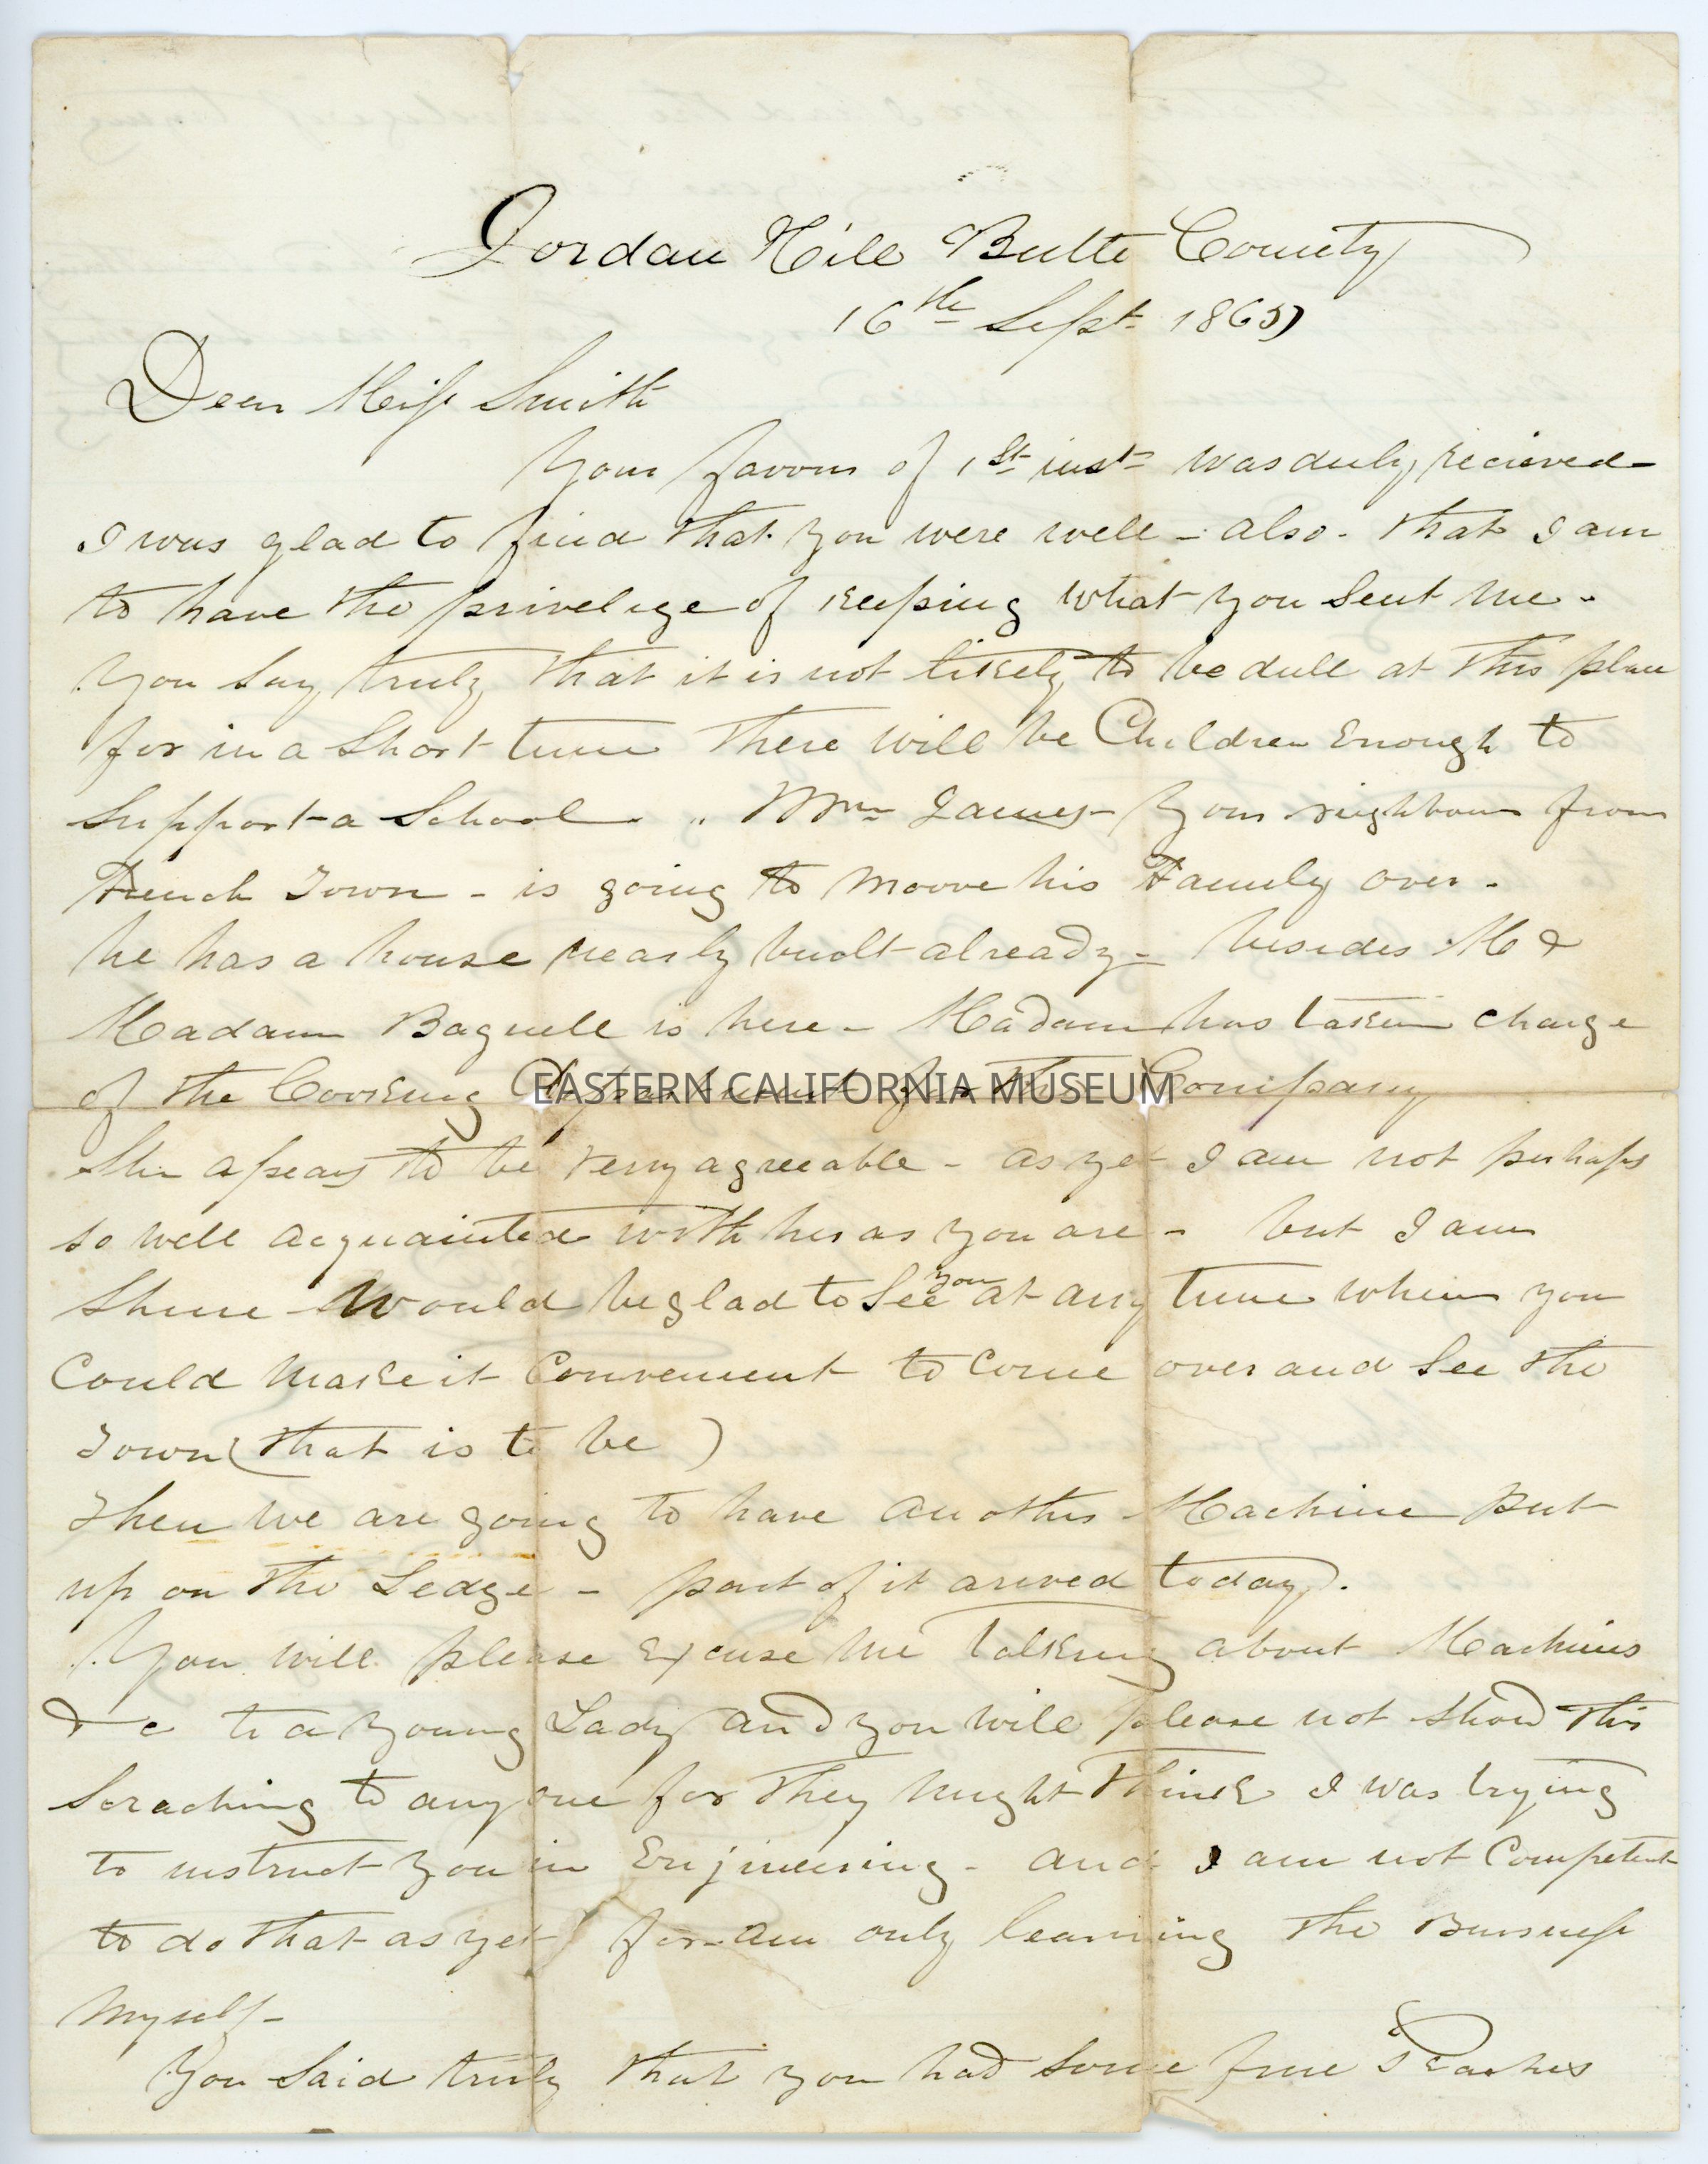 Jordan Hill Butte County
16th Sept 1865
Dear Miss Smith
Your favour of 1st inst was duly recieved
I was glad to find that you were well - also - that I am
to have the privelige of keeping what you sent me -
You say truly that it is not likely to be dull at this place
for in a short time there will be Children Enough to
Support a School. " Wm James - Your neighbour from
French Town - is going to moove his Family over -
he has a house nearly built already - besides M &
Madam Bagnell is here - Madam has taken charge
of the Cooking Department for the Company
EASTERN CALIFORNIA MUSEUM
She apears to be very agreeable - as yet I am not perhaps
so well acquainted with her as you are - but I am
Shure would be glad to See you at any time when you
Could make it Convenient to Come over and See the
Town (that is to be)
Then we are going to have another Machine put
up on the Ledge - part of it arived today.
You will please Excuse me talking about Machines
&c to a Young Lady and you will please not show this
Scraching to any one for they might think I was trying
to instruct you in Enjineering - and I am not Competent
to do that as yet for am only learning the Buisness
myself -
You Said truly that you had some fine Peaches